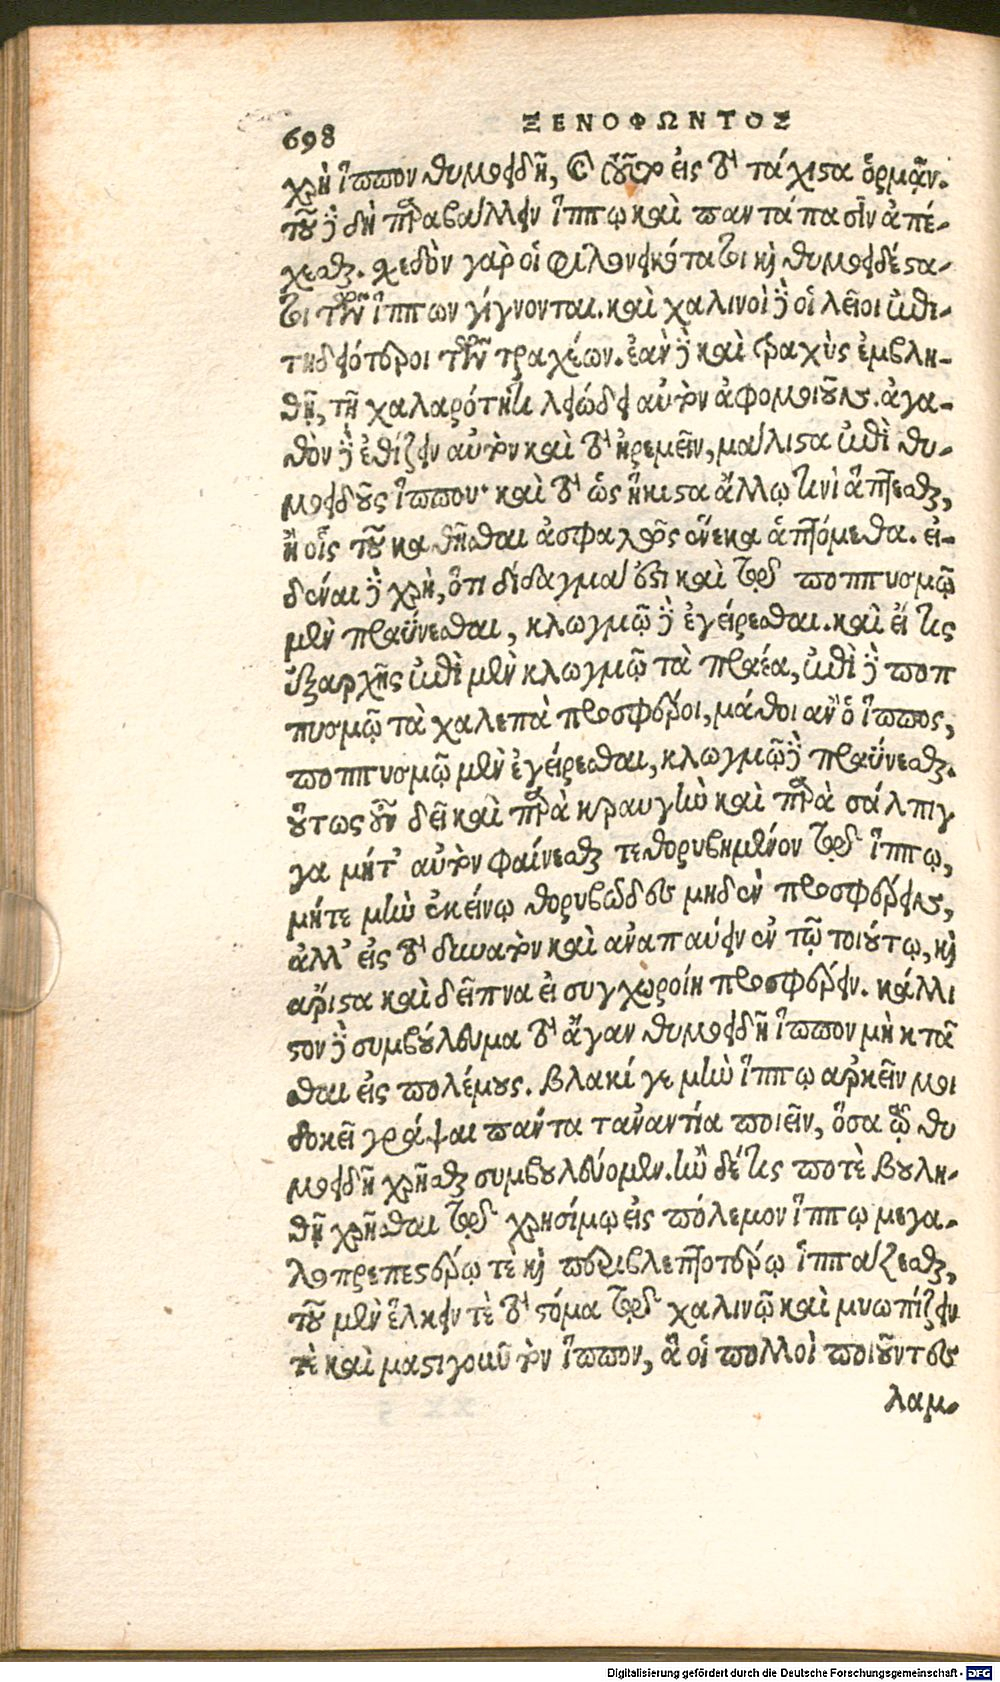 698 ΞΕΝΟΦΩΝΤΟΣ
χρὴ ἵππον θυμοειδῆ, εἰς τὸ τάχιστα ὁρμᾷν.
τοῦ δὲ δὴ παραβάλλειν ἵππῳ καὶ παντάπασιν ἀπέ-
χεσθαι. σχεδὸν γὰρ οἱ φιλονεικότατοι καὶ θυμοειδέστα-
τοι τῶν ἵππων γίγνονται. καὶ χαλινοὶ δὲ οἱ λεῖοι ἐπι-
τηδειότεροι τῶν τραχέων. ἐὰν δὲ καὶ τραχὺς ἐμβλη-
θῇ, τῇ χαλαρότητι λείῳ δεῖ αὐτὸν ἀφομοιοῦν. ἀγα-
θὸν δὲ ἐθίζειν αὐτὸν καὶ τὸ ἠρεμεῖν, μάλιστα ἐπὶ θυ-
μοειδοῦς ἵππου· καὶ τὸ ὡς ἥκιστα ἄλλῳ τινὶ ἅπτεσθαι,
ἢ οἷς τοῦ καθῆσθαι ἀσφαλῶς ἕνεκα ἁπτόμεθα. εἰ-
δέναι δὲ χρὴ, ὅτι δίδαγμά ἐστι καὶ τῷ ποππυσμῷ
μὲν πραΰνεσθαι, κλωγμῷ δὲ ἐγείρεσθαι. καὶ εἴ τις
ἐξαρχῆς ἐπὶ μὲν κλωγμῷ τὰ πραέα, ἐπὶ δὲ ποπ
πυσμῷ τὰ χαλεπὰ προσφέροι, μάθοι ἂν ὁ ἵππος,
ποππυσμῷ μὲν ἐγείρεσθαι, κλωγμῷ δὲ πραΰνεσθαι.
οὕτως οὖν δεῖ καὶ παρὰ κραυγὴν καὶ παρὰ σάλπιγ
γα μήτ' αὐτὸν φαίνεσθαι τεθορυβημένον τῷ ἵππῳ,
μήτε μὴν ἐκείνῳ θορυβῶδες μηδὲν προσφέρειν,
ἀλλ' εἰς τὸ δυνατὸν καὶ ἀναπαύειν ἐν τῷ τοιούτῳ, καὶ
ἄριστα καὶ δεῖπνα εἰ συγχωροίη προσφέρειν. κάλλι
στον δὲ συμβούλευμα τὸ ἄγαν θυμοειδῆ ἵππον μὴ κτᾶ
σθαι εἰς πολέμους. βλακί γε μὴν ἵππῳ ἀρκεῖν μοι
δοκεῖ γράψαι πάντα τἀναντία ποιεῖν, ὅσα τῷ θυ
μοειδῆ χρῆσθαι συμβουλεύομεν. ἢν δέ τις ποτὲ βουλη-
θῇ χρῆσθαι τῷ χρησίμῳ εἰς πόλεμον ἵππῳ μεγα-
λοπρεπεστέρῳ τὲ καὶ περιβλεπτοτέρῳ ἱππάζεσθαι,
τοῦ μὲν ἕλκειν τὲ τὸ στόμα τῷ χαλινῷ καὶ μυωπίζειν
τὲ καὶ μαστιγοῦν τὸν ἵππον, ἃ οἱ πολλοὶ ποιοῦντες
λαμ-
Digitalisierung gefördert durch die Deutsche Forschungsgemeinschaft - DFG